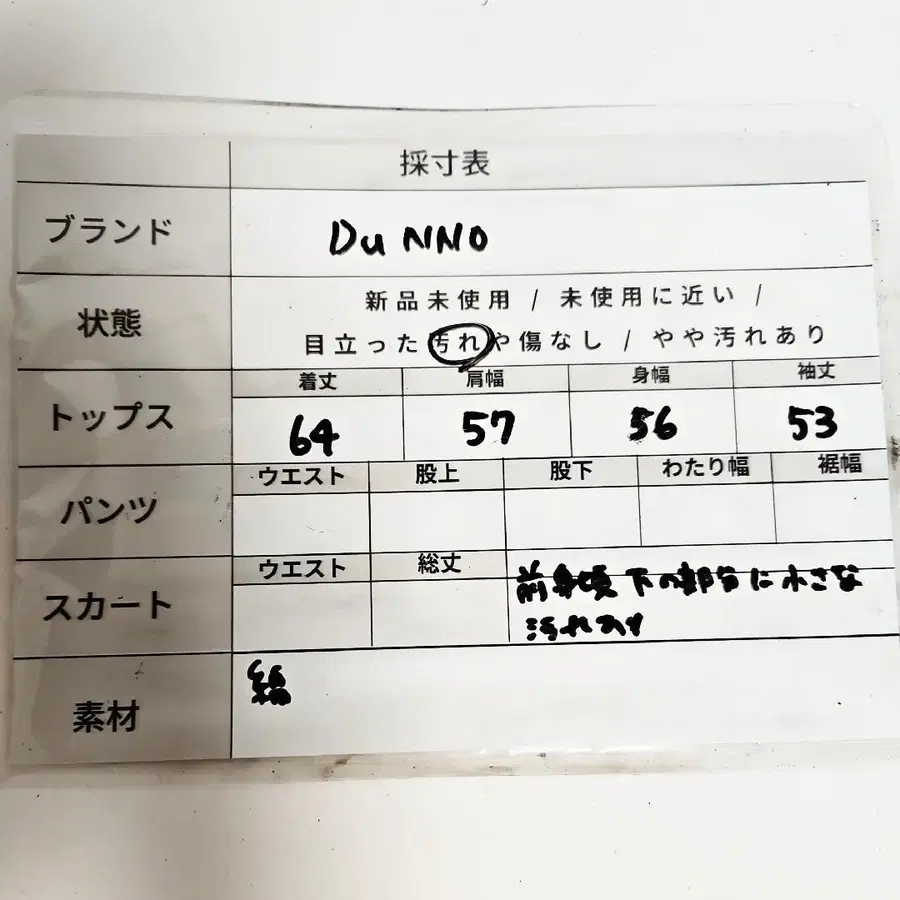 採寸表
ブランド
Du NNO
状態
新品未使用 / 未使用に近い /
目立った汚れや傷なし / やや汚れあり
トップス
着丈 肩幅 身幅 袖丈
64 57 56 53
パンツ
ウエスト 股上 股下 わたり幅 裾幅
スカート
ウエスト 総丈
前身頃下の部分に小さな
汚れあり
素材
綿